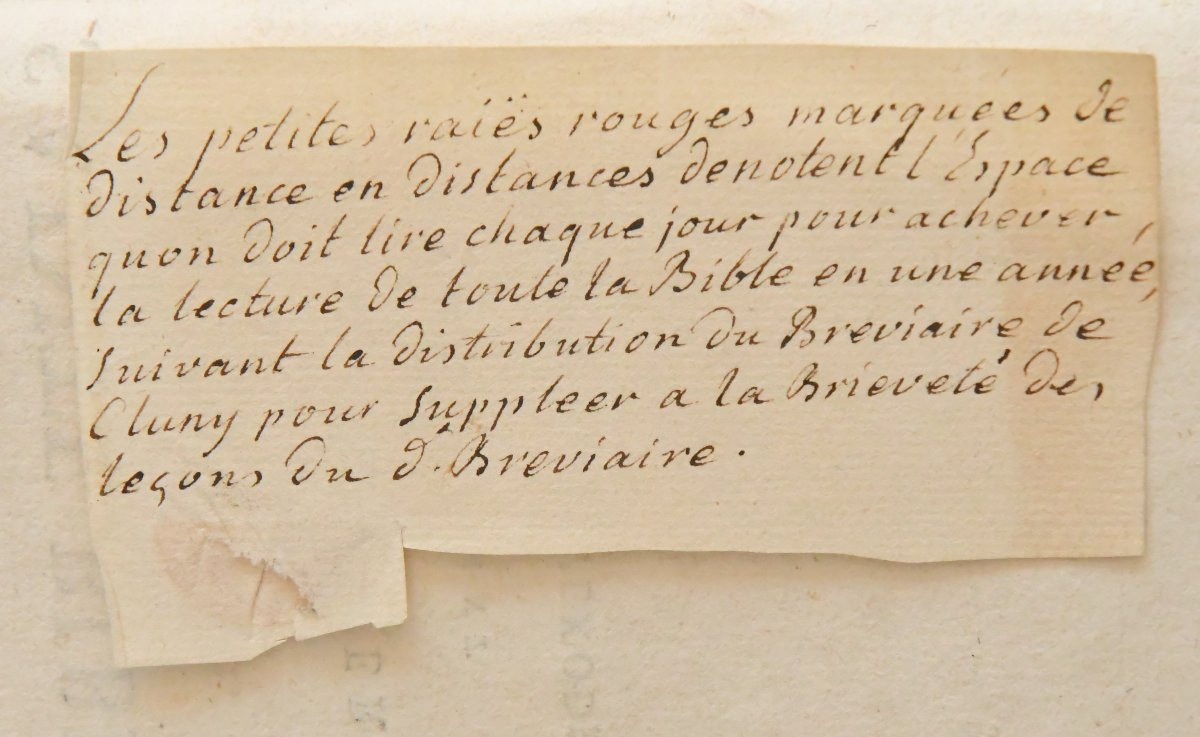 Les petites raiës rouges marquées de
distance en distances denotent l'Espace
quon doit lire chaque jour pour achever
la lecture de toute la Bible en une année,
suivant la distribution du Breviaire de
Cluny pour suppleer a la Brieveté des
leçons du d.t Breviaire.